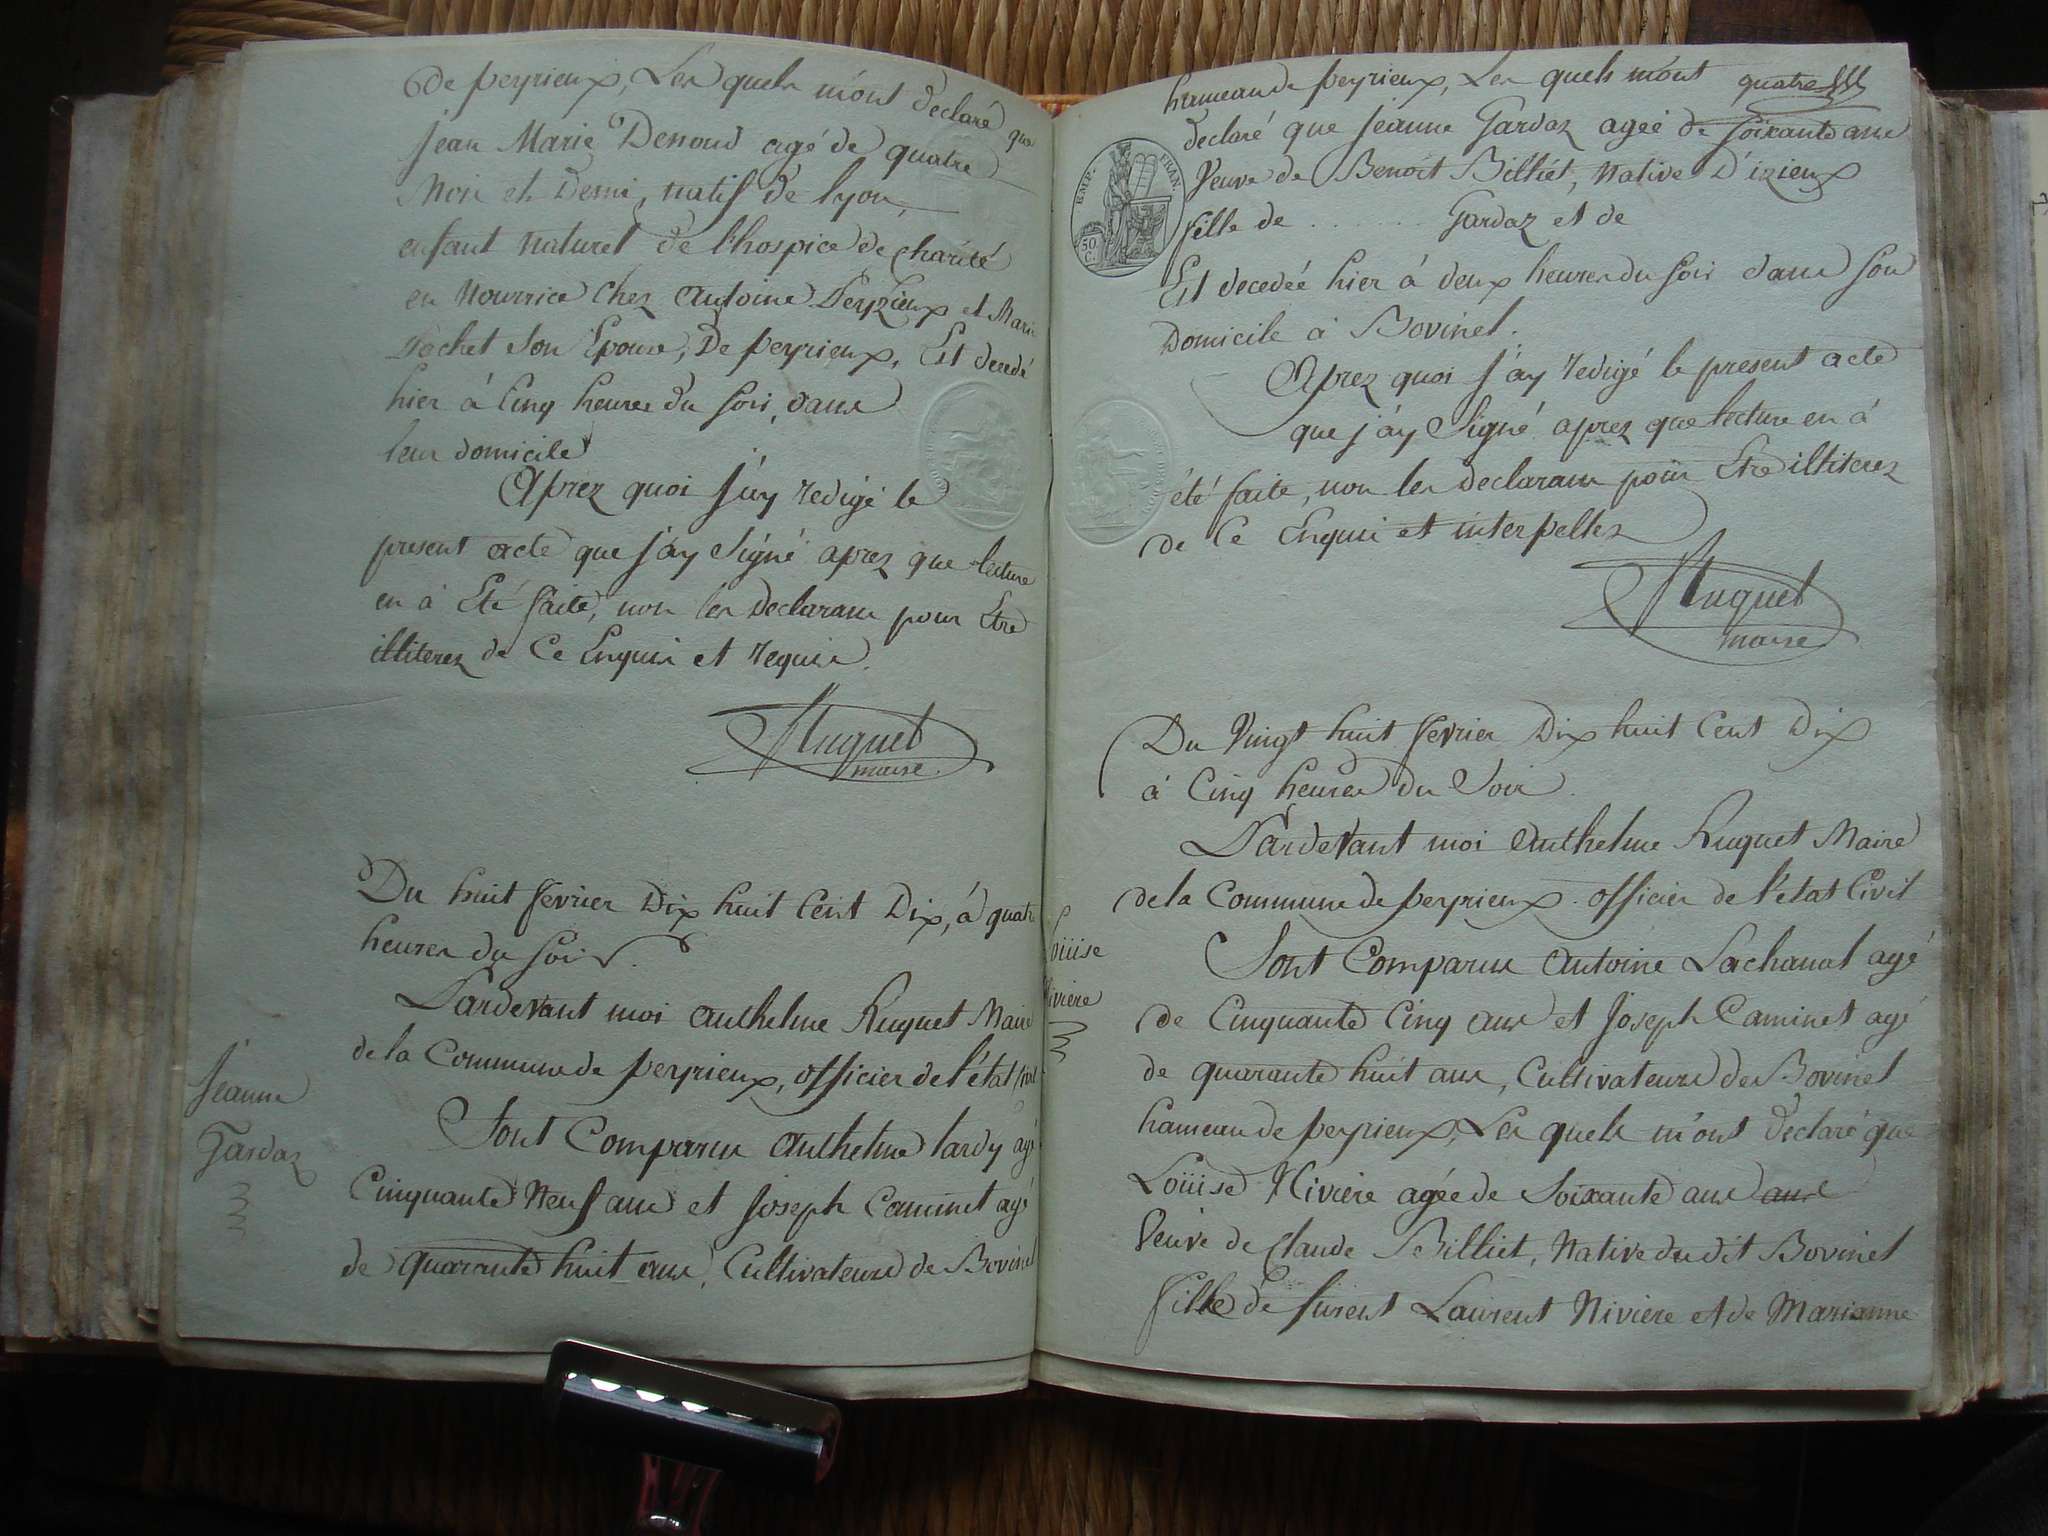 de peyrieux, Les quels m'ont declaré que
Jean Marie Denoud agé de quatre
Mois et Demi, natif de lyon,
enfant naturel de l'hospice de charité
en Nourrice chez Antoine Peyzieux et Marie
Pochet Son Epouse, De peyrieux, Est decedé
hier à Cinq heures du soir, dans
leur domicile
Aprez quoi J'ay redigé le
present acte que j'ay Signé aprez que lecture
en à Eté faite, non les Declarans pour Etre
illiterez de Ce Enquis et requis.
Huguet
maire.
Du huit fevrier Dix huit Cent Dix, à quatre
heures du soir.
Pardevant moi anthelme Huguet Maire
de la Commune de peyrieux, officier de l'état Civil
Jeanne
Gardaz
Sont Comparus anthelme tardy agé
Cinquante Neuf ans et Joseph Caminet agé
de quarante huit ans, Cultivateurs de Bovinel
quatre
hameau de peyrieux, Les quels m'ont
declaré que Jeanne Gardaz agée de soixante ans
Veuve de Benoit Billiet, Native D'izieux
fille de . . . . . . Gardaz et de
EMP. FRAN.
50 C.
Est decedée hier à deux heures du soir dans son
Domicile à Bovinel.
Aprez quoi J'ay redigé le present acte
que j'ay Signé aprez que lecture en à
été faite, non les Declarans pour Etre illiterez
de Ce Enquis et interpellez
Huguet
maire
Du Vingt huit fevrier Dix huit Cent Dix
à Cinq heures du Soir.
Pardevant moi anthelme Huguet Maire
de la Commune de peyrieux. officier de l'état Civil
Loüise
Riviere
Sont Comparus antoine Lachanal agé
de Cinquante Cinq ans et Joseph Caminet agé
de quarante huit ans, Cultivateurs de Bovinel
hameau de peyrieux, Les quels m'ont Declaré que
Loüise Riviere agée de Soixante ans ans
Veuve de Claude Billiet, Native du dit Bovinel
fille de furent Laurent Riviere et de Marianne